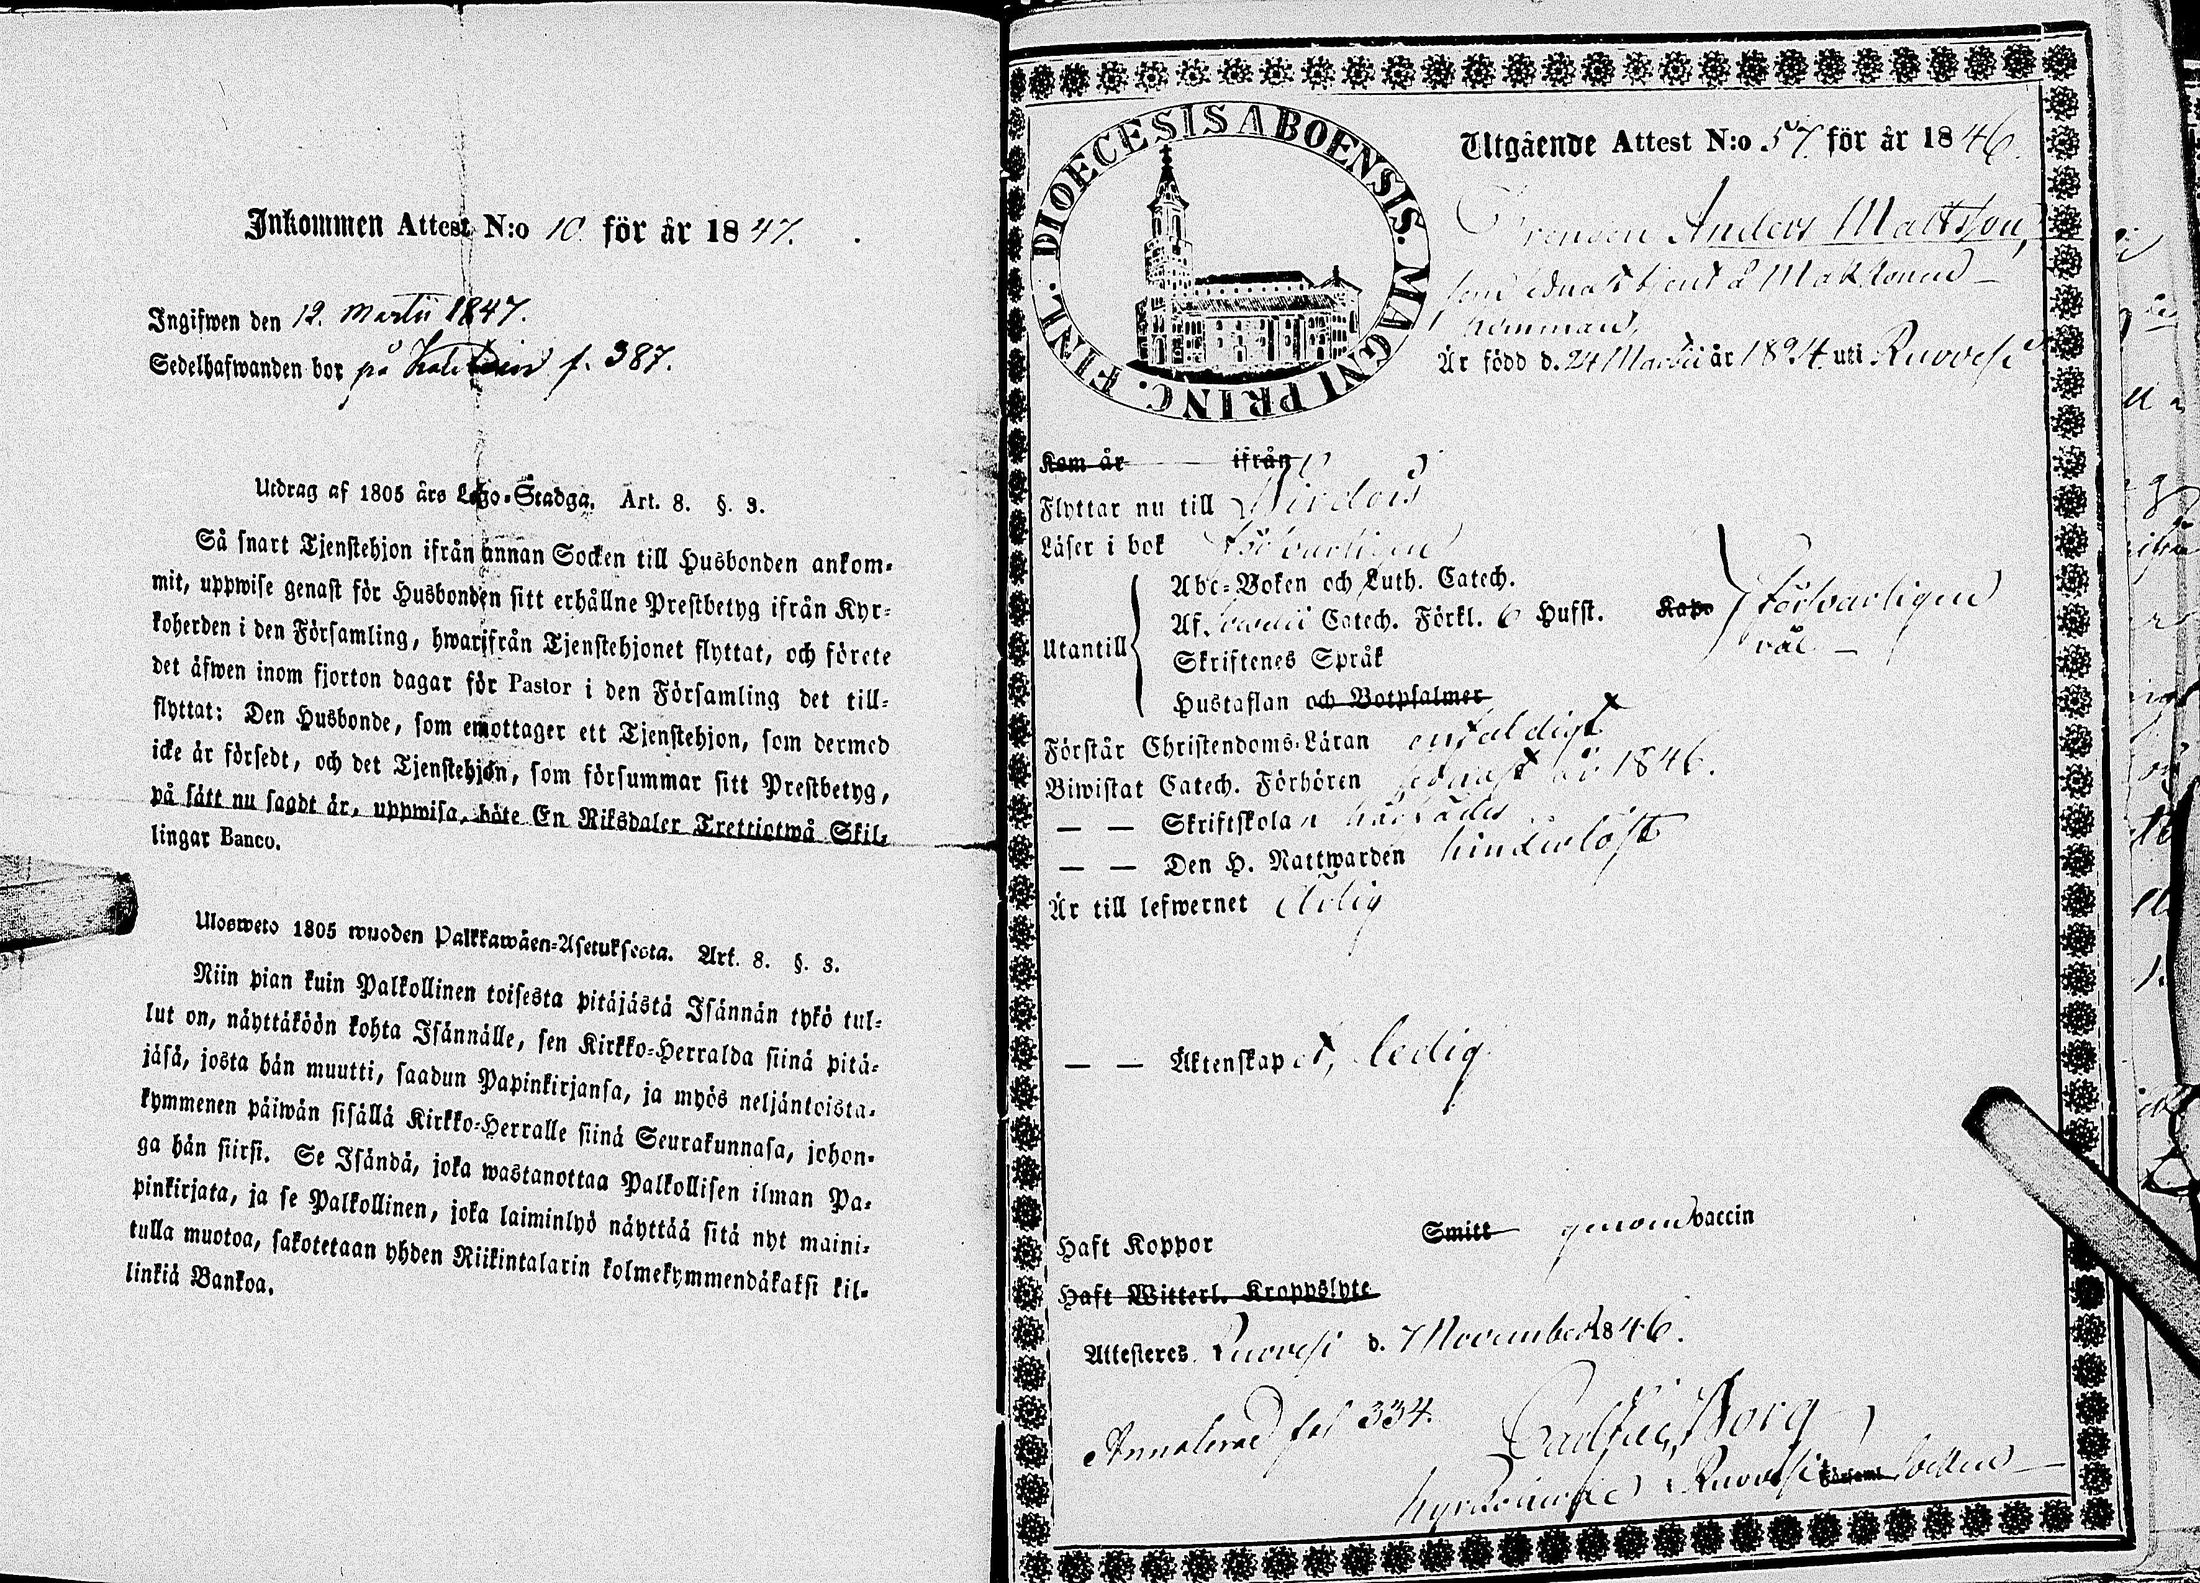 Inkommen Attest N:o 10. för år 1847.
Ingifwen den 12. Martii 1847.
Sedelhafwanden bor på f. 387.
Utdrag af 1805 års Lego-Stadga. Art. 8. §. 3.
Så snart Tjenstehjon ifrån annan Socken till Husbonden ankom-
mit, uppwise genast för Husbonden sitt erhållne Prestbetyg ifrån Kyr-
koherden i den Församling, hwarifrån Tjenstehjonet flyttat, och förete
det äfwen inom fjorton dagar för Pastor i den Församling det till-
flyttat: Den Husbonde, som emottager ett Tjenstehjon, som dermed
icke är försedt, och det Tjenstehjon, som försummar sitt Prestbetyg,
på sätt nu sagdt är, uppwisa, böte En Riksdaler Trettiotwå Skil-
lingar Banco.
Ulosweto 1805 wuoden Palkkawäen-Asetuksesta. Art. 8. §. 3.
Niin pian kuin Palkollinen toisesta pitäjästä Isännän tykö tul-
lut on, näyttäköön kohta Isännälle, sen Kirkko-Herralda siinä pitä-
jäsä, josta hän muutti, saadun Papinkirjansa, ja myös neljäntoista-
kymmenen päiwän sisällä Kirkko-Herralle siinä Seurakunnasa, johon-
ga hän siirsi. Se Isändä, joka wastanottaa Palkollisen ilman Pa-
pinkirjata, ja se Palkollinen, joka laiminlyö näyttää sitä nyt maini-
tulla muotoa, sakotetaan yhden Riikintalarin kolmekymmendäkaksi kil-
linkiä Bankoa.
DIOECESIS ABOENSIS. MAGNI PRINC. FINL.
Utgående Attest N:o 57. för år 1846.
Drengen Anders Mattsson,
som sednast tjent å Makkonen
hemman,
Är född d. 24 Martii år 1824. uti Ruovesi
Kom år ifrån
Flyttar nu till Virdois
Läser i bok försvarligen
Utantill
Abc-Boken och Luth. Catech.
Af Catech. Förkl. 6 Hufst. Kap.
Skriftenes Språk
Hustaflan och Botpsalmer
försvarligen
väl
Förstår Christendoms-Läran enfaldigt
Biwistat Catech. Förhören sednast år 1846.
— — Skriftskolan
— — Den H. Nattwarden hinderlöst
Är till lefwernet ärlig
— — Äktenskapet, ledig
Haft Koppor Smitt genom vaccin
Haft Witterl. Kroppslyte
Attesteres Ruovesi d. 7 November 1846.
Annoterad fol 334.
Borg
Ruovesi Församl